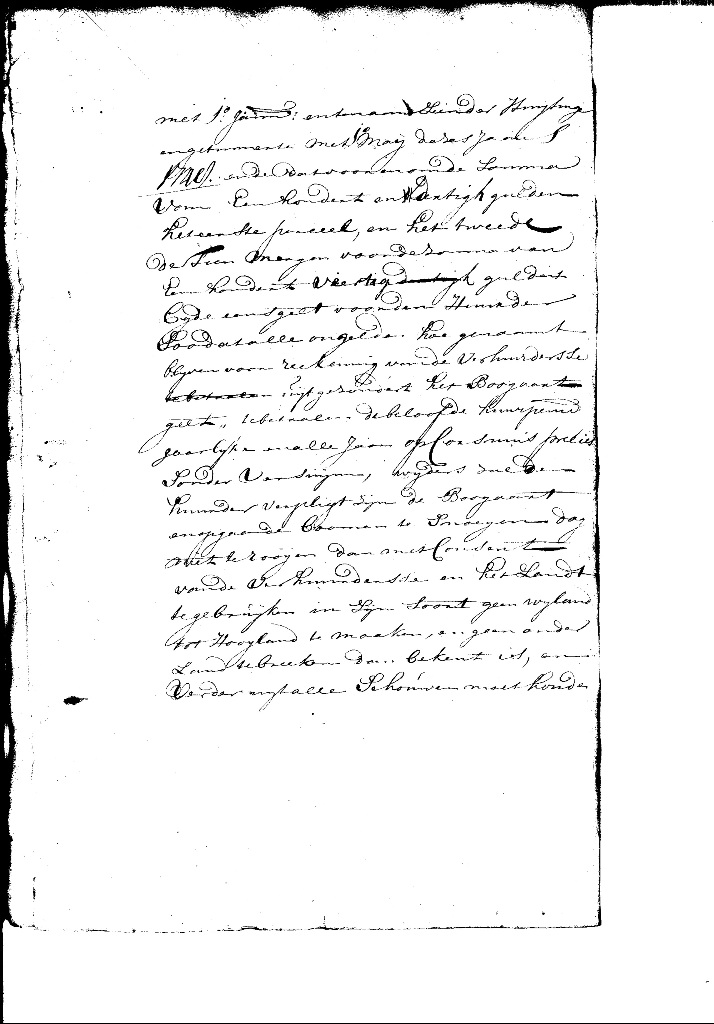 met 1e Janu: en te naam Sünder Huysinge
en getimmerte met 1e Maij dezes Jaars
1748. ende dat voor en om de Somma
van Een hondert en dertigh gulden
het eerste perceel, en het tweede
de Tien Morgen voor de zomma van
Een hondert veertig guldens
Eyde eens gelt voor den Huurder
Soo dat alle ongelde. hoe genaamt
blyven voor reekening van de Verhuurdersse
uijtgezondert het Boogaart
gelt, te betaalen de beloofde huurpenn
jaarlyx en alle Jaar op Consminis precies
Sonder Versuijm, wyders zal de
huurder verpligt zijn de Boogaart
en opgaande Boomen te Snoeijen dog
niet te rooijen dan met Consent
van de Verhuurdersse en het Landt
te gebruijken in zijn Soort geen wyland
tot Hooyland te maaken, en geen ander
Land te breeken dan bekent is, en
Verder uyt alle Schouwen moet houde